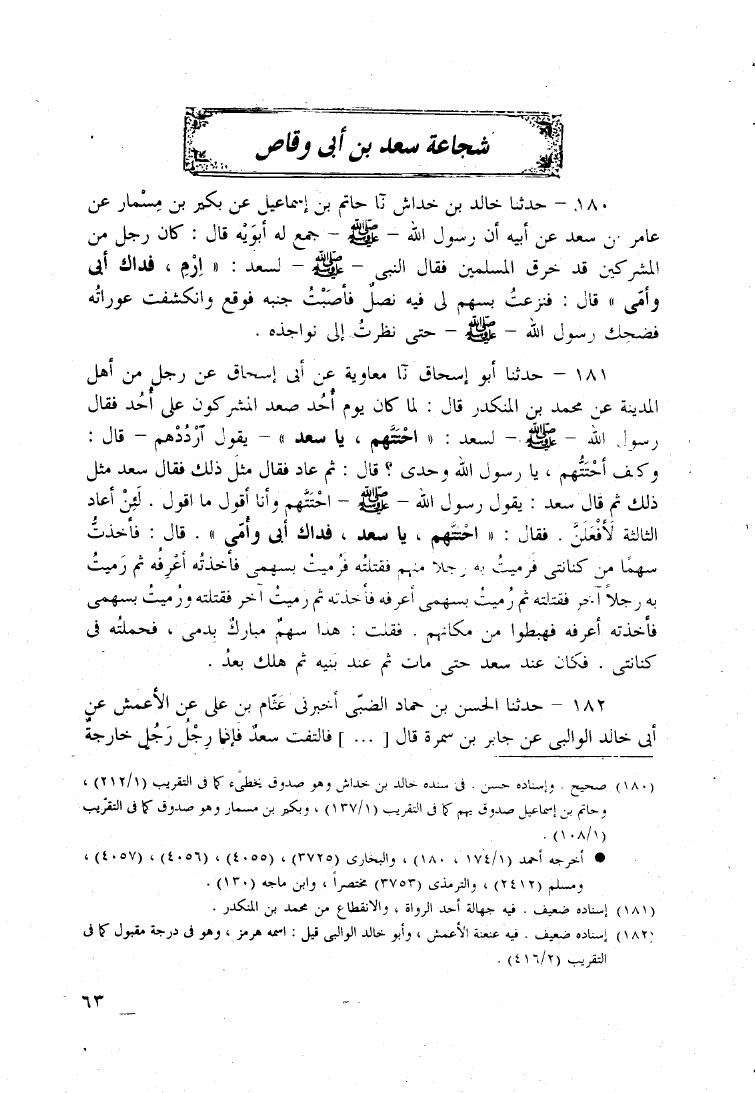 شجاعة سعد بن أبى وقاص
١٨٠ – حدثنا خالد بن خداش نَا حاتم بن إسماعيل عن بكير بن مِسْمار عن
عامر بن سعد عن أبيه أن رسول الله – ﷺ – جمع له أبوَيْه قال : كان رجل من
المشركين قد خرق المسلمين فقال النبى – ﷺ – لسعد : « اِرْمِ ، فداك أبى
وأمّى » قال : فنزعتُ بسهم لى فيه نصلٌ فأصَبْتُ جنبه فوقع وانكشفت عوراتُه
فضحك رسول الله – ﷺ – حتى نظرتُ إلى نواجذه .
١٨١ – حدثنا أبو إسحاق نَا معاوية عن أبى إسحاق عن رجل من أهل
المدينة عن محمد بن المنكدر قال : لما كان يوم أُحُد صعد المشركون على أُحُد فقال
رسول الله – ﷺ – لسعد : « احْتَتَّهم ، يا سعد » – يقول آرْدُدْهم – قال :
وكيف أحْتَتُّهم ، يا رسول الله وحدى ؟ قال : ثم عاد فقال مثلَ ذلك فقال سعد مثل
ذلك ثم قال سعد : يقول رسول الله – ﷺ – احْتَتَّهم وأنا أقول ما اقول . لَئِنْ أعاد
الثالثة لَأَفْعَلَنَّ . فقال : « احْتَتَّهم ، يا سعد ، فداك أبى وأُمّى » . قال : فأخذتُ
سهمًا من كنانتى فرميتُ به رجلا منهم فقتلتُه فرُميتُ بسهمى فأخذتُه أعْرِفُه ثم رَميتُ
به رجلاً آخر فقتلته ثم رُميتُ بسهمى أعرفه فأخذته ثم رميتُ آخر فقتلته ورُميتُ بسهمى
فأخذته أعرفه فهبطوا من مكانهم . فقلت : هذا سهمٌ مباركٌ بدمى ، فحملتُه فى
كنانتى . فكان عند سعد حتى مات ثم عند بَنيه ثم هلك بعدُ .
١٨٢ – حدثنا الحسن بن حماد الضبّى أخبرنى عَثّام بن على عن الأعمش عن
أبى خالد الوالبى عن جابر بن سمرة قال [ ... ] فالتفت سعدٌ فإنما رِجْلُ رَجُلٍ خارجةٌ
(١٨٠) صحيح . وإسناده حسن . فى سنده خالد بن خداش وهو صدوق يخطىء كما فى التقريب (٢١٢/١) ،
وحاتم بن إسماعيل صدوق يهم كما فى التقريب (١٣٧/١) ، وبكير بن مسمار وهو صدوق كما فى التقريب
(١٠٨/١) .
● أخرجه أحمد (١٧٤/١ ، ١٨٠) ، والبخارى (٣٧٢٥) ، (٤٠٥٥) ، (٤٠٥٦) ، (٤٠٥٧) ،
ومسلم (٢٤١٢) ، والترمذى (٣٧٥٣) مختصراً ، وابن ماجه (١٣٠) .
(١٨١) إسناده ضعيف . فيه جهالة أحد الرواة ، والانقطاع من محمد بن المنكدر .
(١٨٢) إسناده ضعيف . فيه عنعنة الأعمش ، وأبو خالد الوالبى قيل : اسمه هرمز ، وهو فى درجة مقبول كما فى
التقريب (٤١٦/٢) .
٦٣